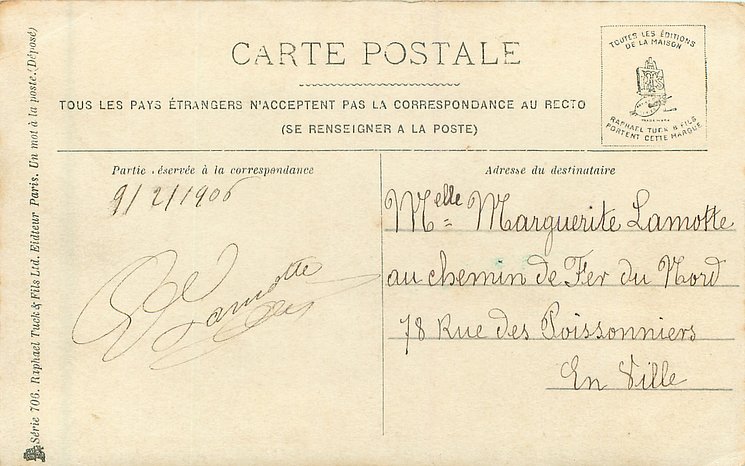 CARTE POSTALE
TOUS LES PAYS ÉTRANGERS N'ACCEPTENT PAS LA CORRESPONDANCE AU RECTO
(SE RENSEIGNER A LA POSTE)
TOUTES LES ÉDITIONS
DE LA MAISON
TRADE MARK
RAPHAEL TUCK & FILS
PORTENT CETTE MARQUE
Partie éservée à la correspondance
9/2/1906
Lamotte
Adresse du destinataire
Melle Marguerite Lamotte
au chemin de Fer du Nord
78 Rue des Poissonniers
En Ville
Série 706. Raphael Tuck & Fils Ltd. Eidteur Paris. Un mot à la poste. (Déposé)